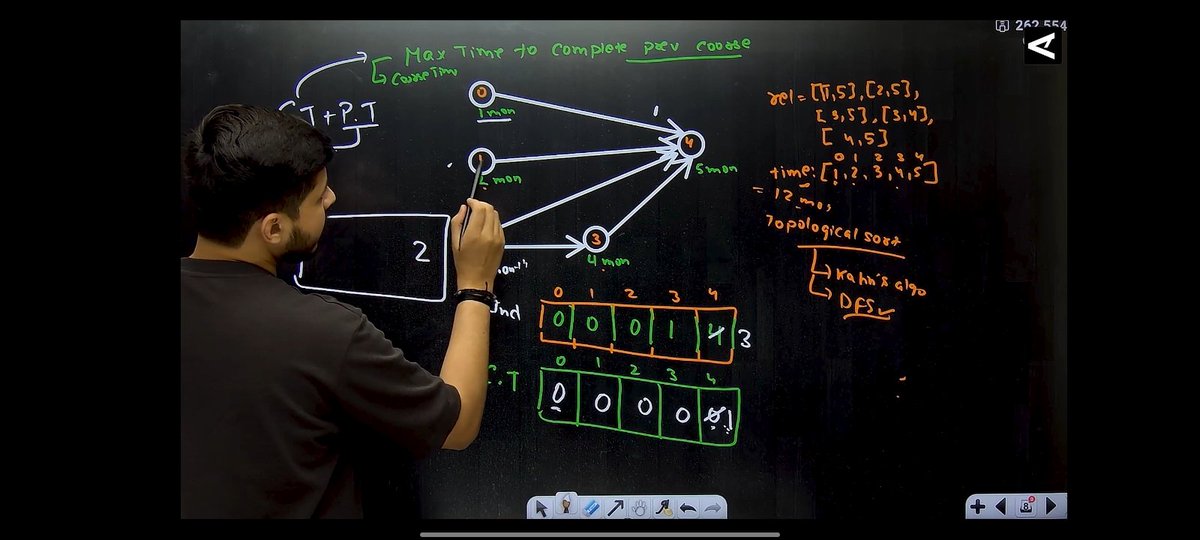 262 554
Max Time to complete prev coorse
CoorseTime
T + P.T
0
1 mon
1
1
2 mon
4
5 mon
2
3
4 mon
rel = [[1,5], [2,5],
[3,5], [3,4],
[4,5]
0 1 2 3 4
time: [1, 2, 3, 4, 5]
= 12 mo,
Topological sort
Kahn's algo
DFS
Ind
0 1 2 3 4
0 0 0 1 4 3
0 1 2 3 4
C.T
0 0 0 0 0 1
8